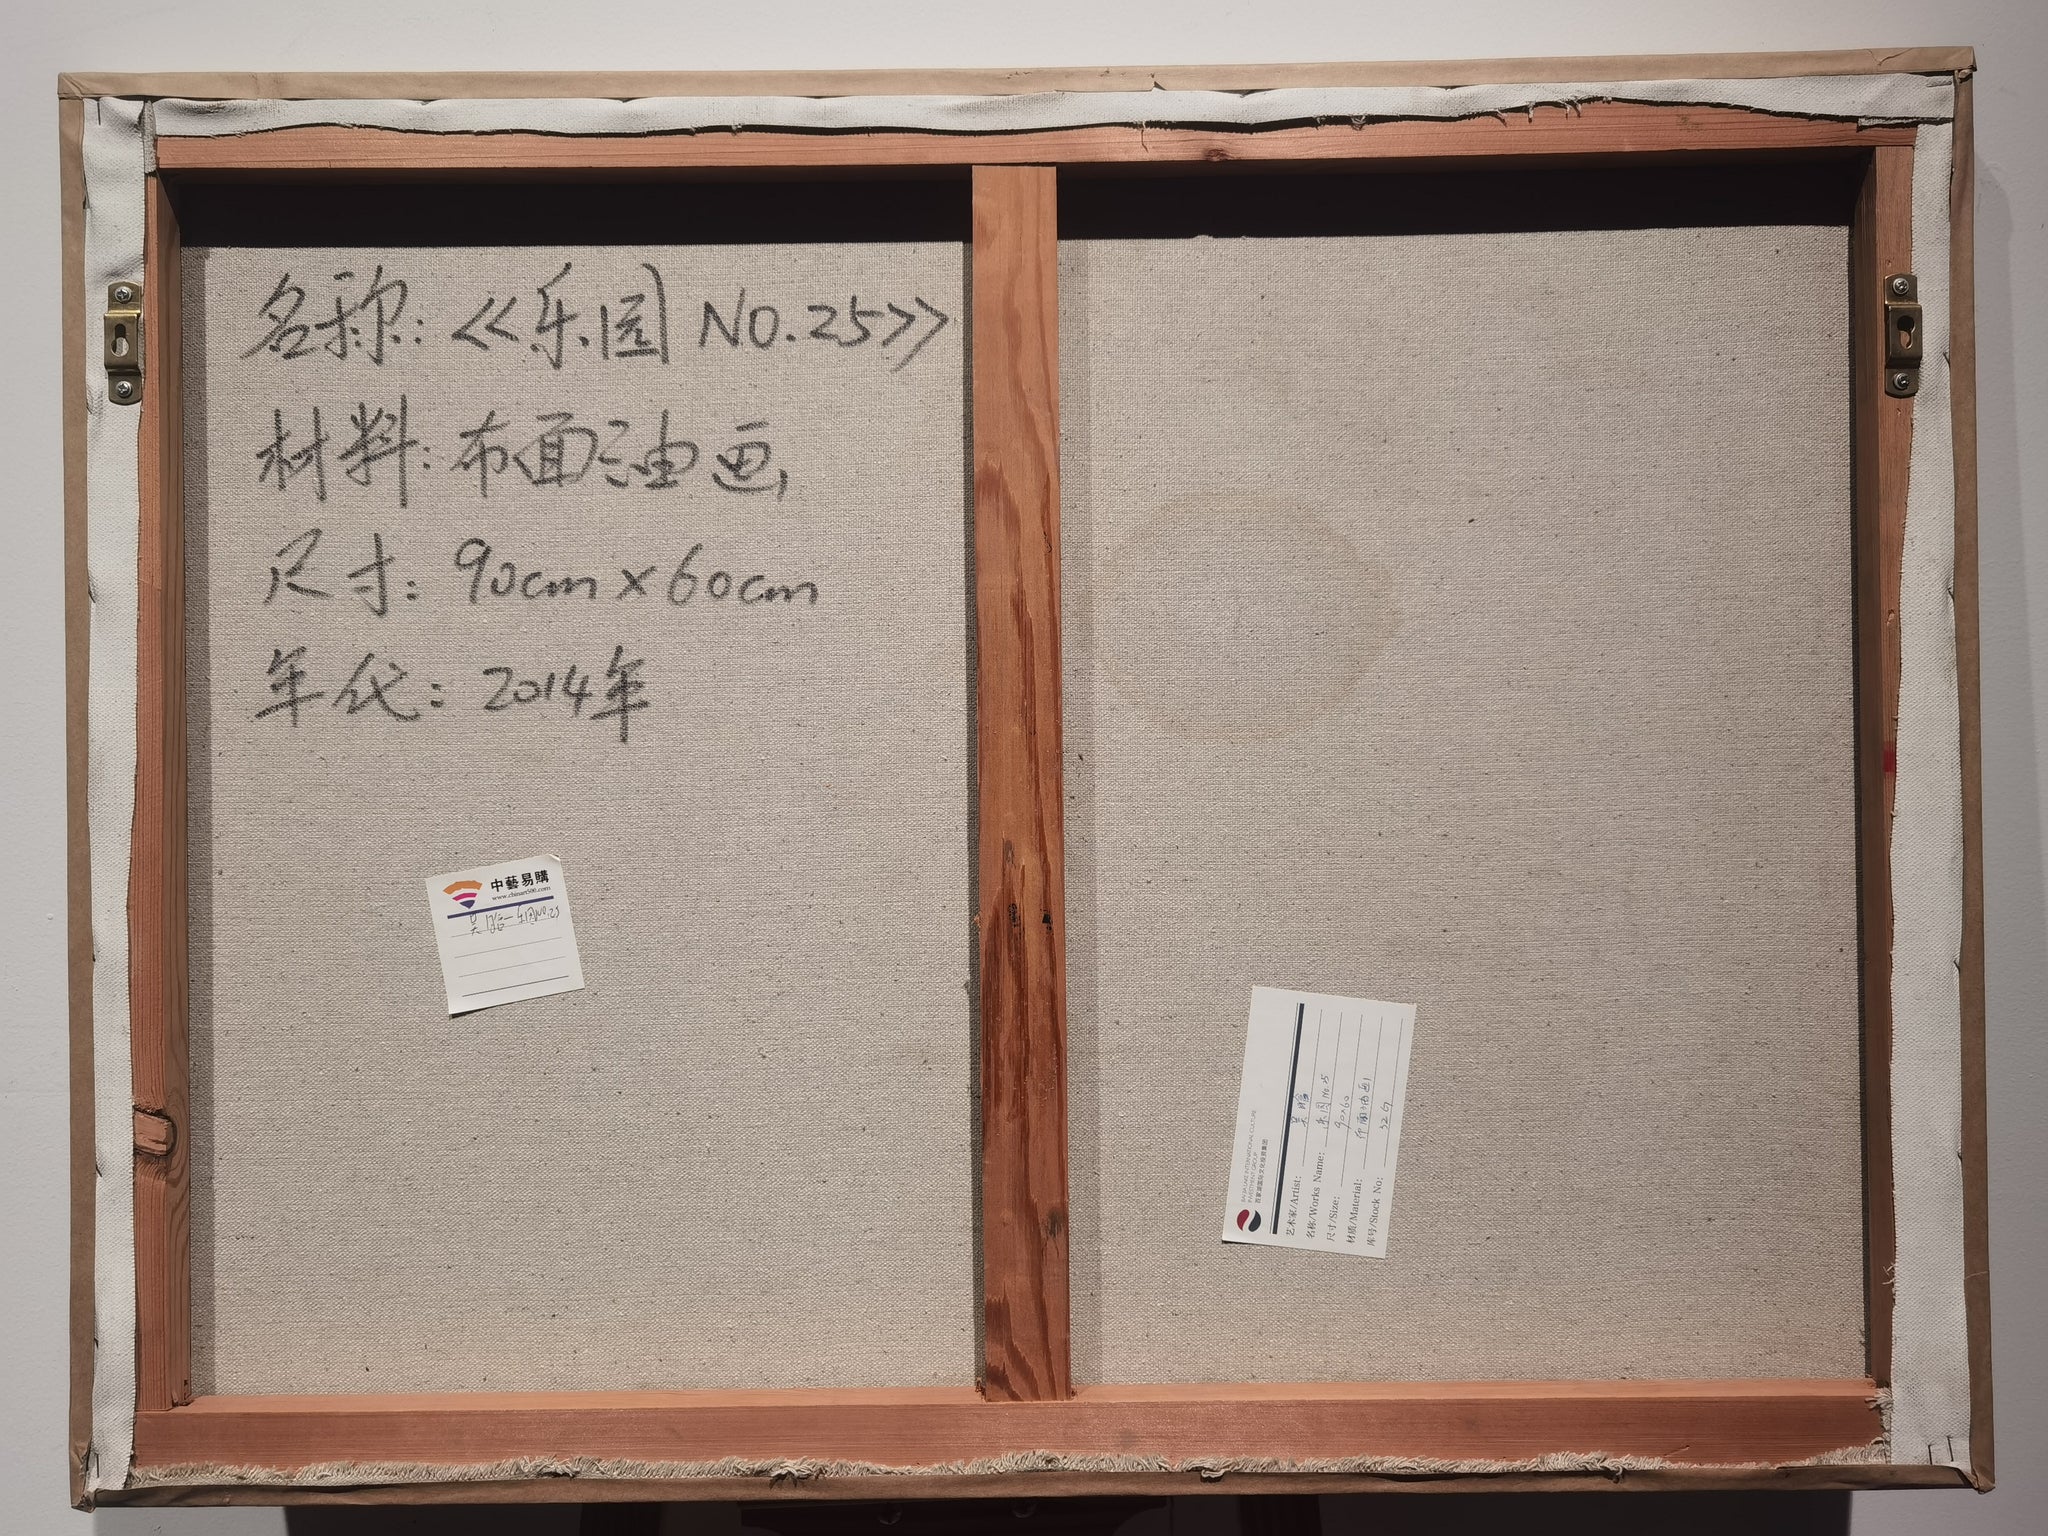 名称:《乐园 NO.25》
材料:布面油画
尺寸:90cm×60cm
年代:2014年
中藝易購
www.chinart500.com
吴 一乐园NO.25
INTERNATIONAL CULTURE
INVESTMENT GROUP
百家湖国际文化投资集团
艺术家/Artist: 吴
名称/Works Name: 乐园 No
尺寸/Size: 90×60
材质/Material: 布面油画
库号/Stock No: